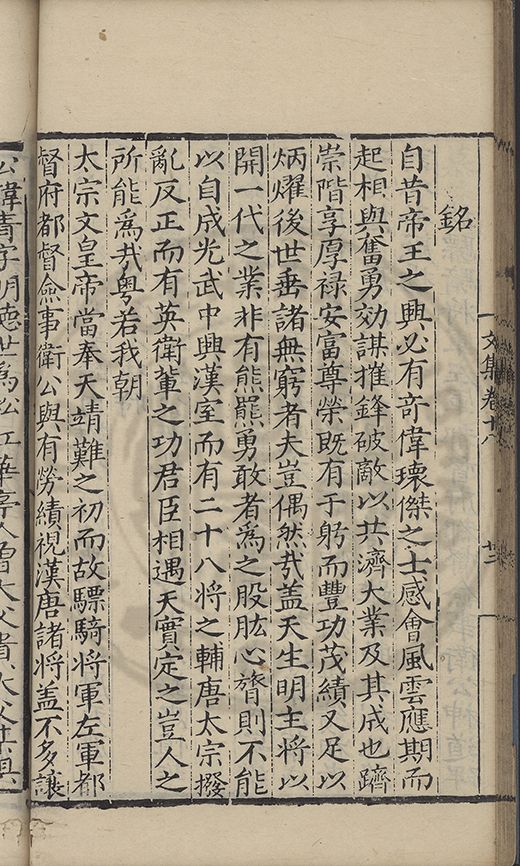 文集卷十八
廿二
銘
自昔帝王之興必有竒偉瓌傑之士感會風雲應期而
起相與奮勇効謀摧鋒破敵以共濟大業及其成也躋
崇階享厚禄安富尊榮既有于躬而豐功茂績又足以
炳燿後世垂諸無窮者夫豈偶然㢤盖天生明主將以
開一代之業非有熊羆勇敢者為之股肱心膂則不能
以自成光武中興漢室而有二十八將之輔唐太宗撥
亂反正而有英衛輩之功君臣相遇天實定之豈人之
所能為㢤粤若我朝
太宗文皇帝當奉天靖難之初而故驃騎將軍左軍都
督府都督僉事衛公與有勞績視漢唐諸將盖不多讓
公諱青字明德世為松江華亭人曾大父貴大父某俱